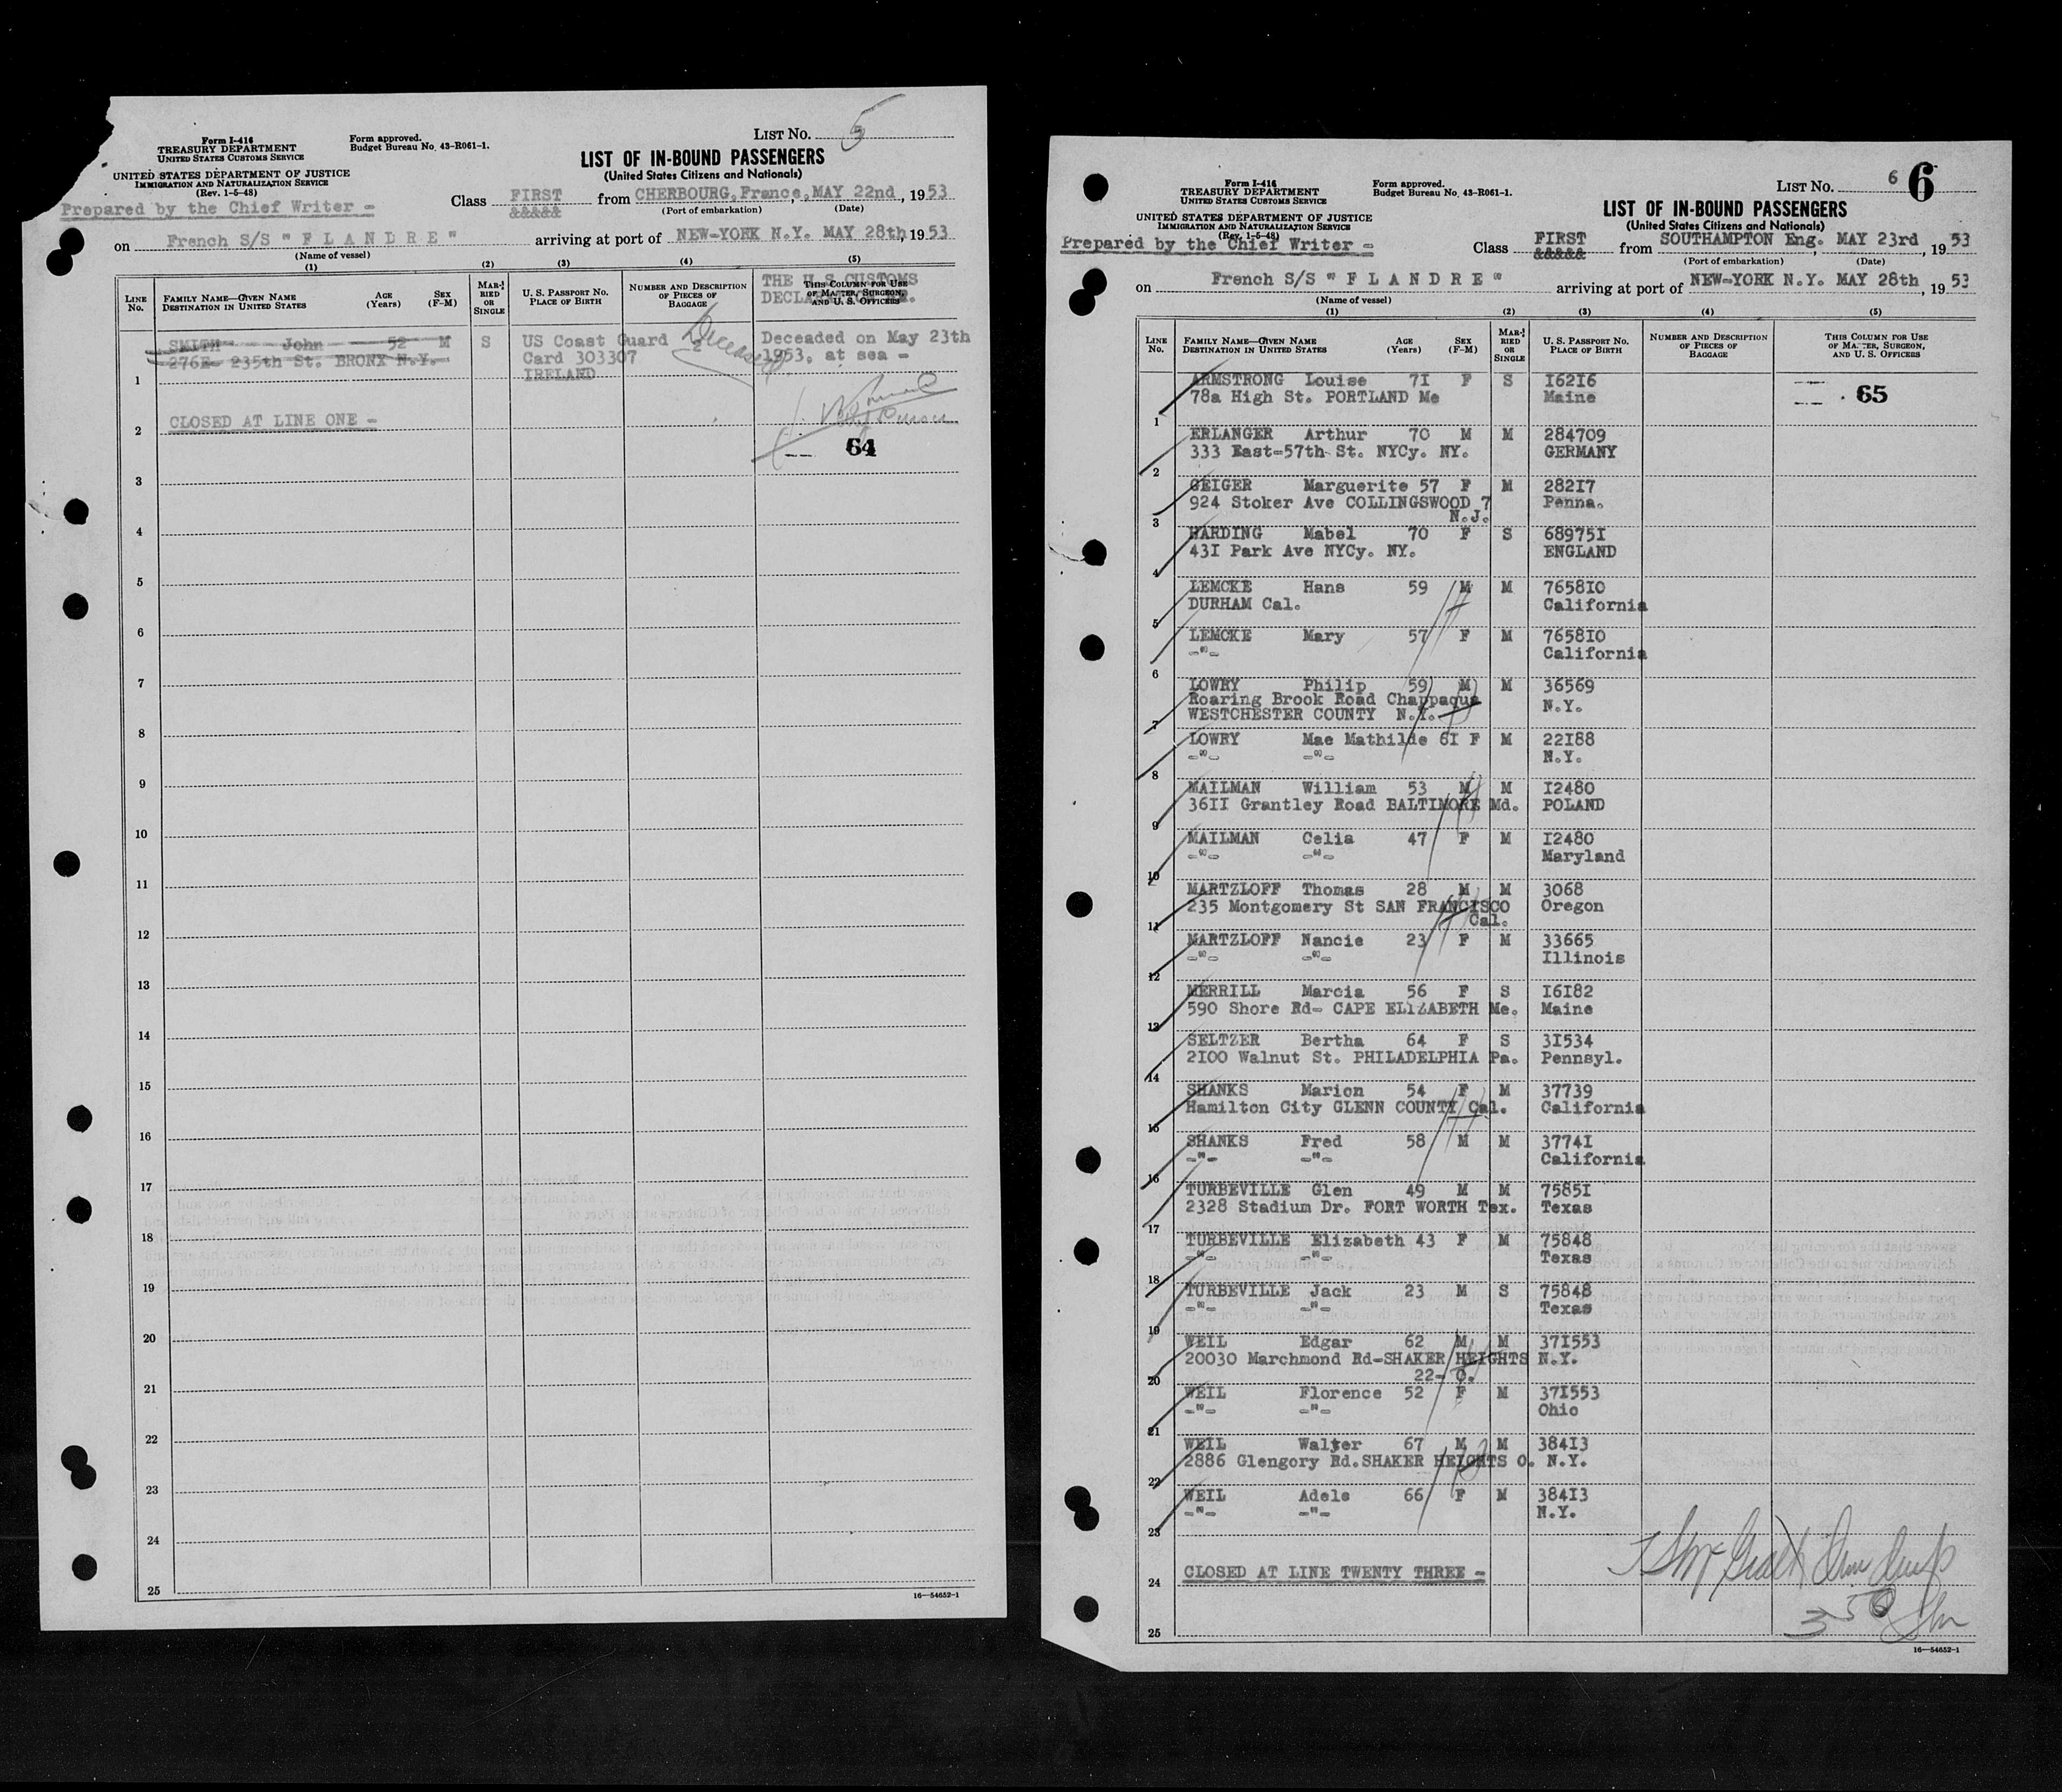 LIST NO. 5
Form I-416
TREASURY DEPARTMENT
UNITED STATES CUSTOMS SERVICE
Form approved.
Budget Bureau No. 43-R061-1.
LIST OF IN-BOUND PASSENGERS
(United States Citizens and Nationals)
UNITED STATES DEPARTMENT OF JUSTICE
IMMIGRATION AND NATURALIZATION SERVICE
(Rev. 1-5-48)
Prepared by the Chief Writer -
Class FIRST from CHERBOURG, France, MAY 22nd, 1953
&&&&&
(Port of embarkation) (Date)
on French S/S " F L A N D R E " arriving at port of NEW-YORK N.Y. MAY 28th, 1953
(Name of vessel)
(1) (2) (3) (4) (5)
THE U.S. CUSTOMS
LINE No. FAMILY NAME—GIVEN NAME DESTINATION IN UNITED STATES AGE (Years) SEX (F-M) MARRIED OR SINGLE U. S. PASSPORT NO. PLACE OF BIRTH NUMBER AND DESCRIPTION OF PIECES OF BAGGAGE THIS COLUMN FOR USE OF MASTER, SURGEON, AND U. S. OFFICERS
SMITH John 52 M S US Coast Guard Deceaded on May 23th
276E- 235th St. BRONX N.Y. Card 303307 1953, at sea -
IRELAND
Deceased
1
CLOSED AT LINE ONE -
2
64
3
4
5
6
7
8
9
10
11
12
13
14
15
16
17
18
19
20
21
22
23
24
25
16—54652-1
LIST NO. 6 6
Form I-416
TREASURY DEPARTMENT
UNITED STATES CUSTOMS SERVICE
Form approved.
Budget Bureau No. 43-R061-1.
LIST OF IN-BOUND PASSENGERS
(United States Citizens and Nationals)
UNITED STATES DEPARTMENT OF JUSTICE
IMMIGRATION AND NATURALIZATION SERVICE
(Rev. 1-5-48)
Prepared by the Chief Writer -
Class FIRST from SOUTHAMPTON Eng. MAY 23rd 1953
&&&&&
(Port of embarkation) (Date)
on French S/S " F L A N D R E " arriving at port of NEW-YORK N.Y. MAY 28th, 1953
(Name of vessel)
(1) (2) (3) (4) (5)
LINE No. FAMILY NAME—GIVEN NAME DESTINATION IN UNITED STATES AGE (Years) SEX (F-M) MARRIED OR SINGLE U. S. PASSPORT NO. PLACE OF BIRTH NUMBER AND DESCRIPTION OF PIECES OF BAGGAGE THIS COLUMN FOR USE OF MASTER, SURGEON, AND U. S. OFFICERS
ARMSTRONG Louise 7I F S I62I6
78a High St. PORTLAND Me Maine 65
1
ERLANGER Arthur 70 M M 284709
333 East-57th St. NYCy. NY. GERMANY
2
GEIGER Marguerite 57 F M 282I7
924 Stoker Ave COLLINGSWOOD 7 Penna.
N.J.
3
HARDING Mabel 70 F S 68975I
43I Park Ave NYCy. NY. ENGLAND
4
LEMCKE Hans 59 M M 7658IO
DURHAM Cal. California
5
LEMCKE Mary 57 F M 7658IO
-"- California
6
LOWRY Philip 59 M M 36569
Roaring Brook Road Chappaqua N.Y.
WESTCHESTER COUNTY N.Y.
7
LOWRY Mae Mathilde 6I F M 22I88
-"- -"- N.Y.
8
MAILMAN William 53 M M I2480
36II Grantley Road BALTIMORE Md. POLAND
9
MAILMAN Celia 47 F M I2480
-"- -"- Maryland
10
MARTZLOFF Thomas 28 M M 3068
235 Montgomery St SAN FRANCISCO Oregon
Cal.
11
MARTZLOFF Nancie 23 F M 33665
-"- -"- Illinois
12
MERRILL Marcia 56 F S I6I82
590 Shore Rd- CAPE ELIZABETH Me. Maine
13
SELTZER Bertha 64 F S 3I534
2IOO Walnut St. PHILADELPHIA Pa. Pennsyl.
14
SHANKS Marion 54 F M 37739
Hamilton City GLENN COUNTY Cal. California
15
SHANKS Fred 58 M M 3774I
-"- -"- California
16
TURBEVILLE Glen 49 M M 7585I
2328 Stadium Dr. FORT WORTH Tex. Texas
17
TURBEVILLE Elizabeth 43 F M 75848
-"- -"- Texas
18
TURBEVILLE Jack 23 M S 75848
-"- -"- Texas
19
WEIL Edgar 62 M M 37I553
20030 Marchmond Rd-SHAKER HEIGHTS N.Y.
22- O.
20
WEIL Florence 52 F M 37I553
-"- -"- Ohio
21
WEIL Walter 67 M M 384I3
2886 Glengory Rd.SHAKER HEIGHTS O. N.Y.
22
WEIL Adele 66 F M 384I3
-"- -"- N.Y.
23
CLOSED AT LINE TWENTY THREE -
24
25
16—54652-1